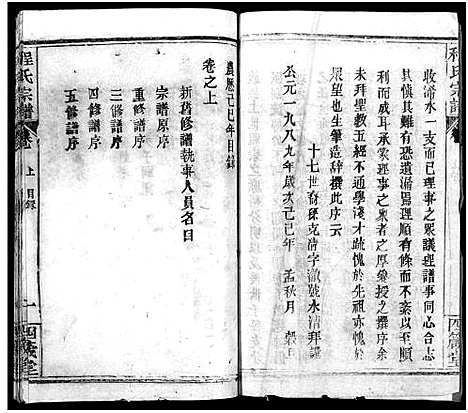 程氏宗譜
收浠水一支而已理事之衆議理譜事同心合志
其嚴惟難有恐遺漏爲理順有條而成歸順
利而咸耳承衆理事之衆者之厚意授之撰序余
未拜聖教五經不通學淺才疎愧於先祖亦愧於
衆望也生筆造辭撰此序云
十七世裔孫克清字澈號水清拜譔
公元一九八九年歲次己巳年 孟秋月 穀旦
四箴堂
農歷己巳年目録
卷之上
新舊修譜執事人員名目
宗譜原序
重修譜序
三修譜序
四修譜序
五修譜序
程氏宗譜
卷
上 目録
一
四箴堂